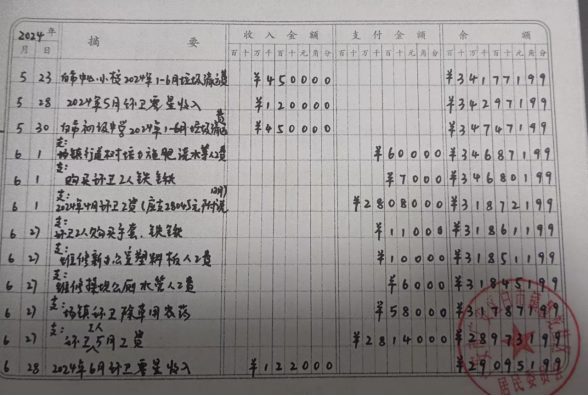 2024年 摘要 收入金额 支付金额 余额
月 日 百十万千百十元角分 百十万千百十元角分 百十万千百十元角分
5 23 白市中心小校2024年1-6月垃圾清运费 ¥450000 ¥34177199
5 28 2024年5月环卫零星收入 ¥120000 ¥34297199
5 30 白市初级中学2024年1-6月垃圾清运费 ¥450000 ¥34747199
6 1 支:场镇行道树培力施肥浇水等人工费 ¥60000 ¥34687199
6 1 支:购买环卫工人铁 ¥7000 ¥34680199
6 1 支:2024年4月环卫工资(应支28045元 ¥2808000 ¥31872199
6 27 支:环卫工人购买手套、铁 ¥11000 ¥31861199
6 27 支:维修新办公室塑料 人工费 ¥10000 ¥31851199
6 27 支:维修 公厕水管人工费 ¥6000 ¥31845199
6 27 支:场镇环卫除草用农药 ¥58000 ¥31787199
6 27 支:环卫工人5月工资 ¥2814000 ¥28973199
6 28 2024年6月环卫零星收入 ¥122000 ¥29095199
白市镇
居民委员会